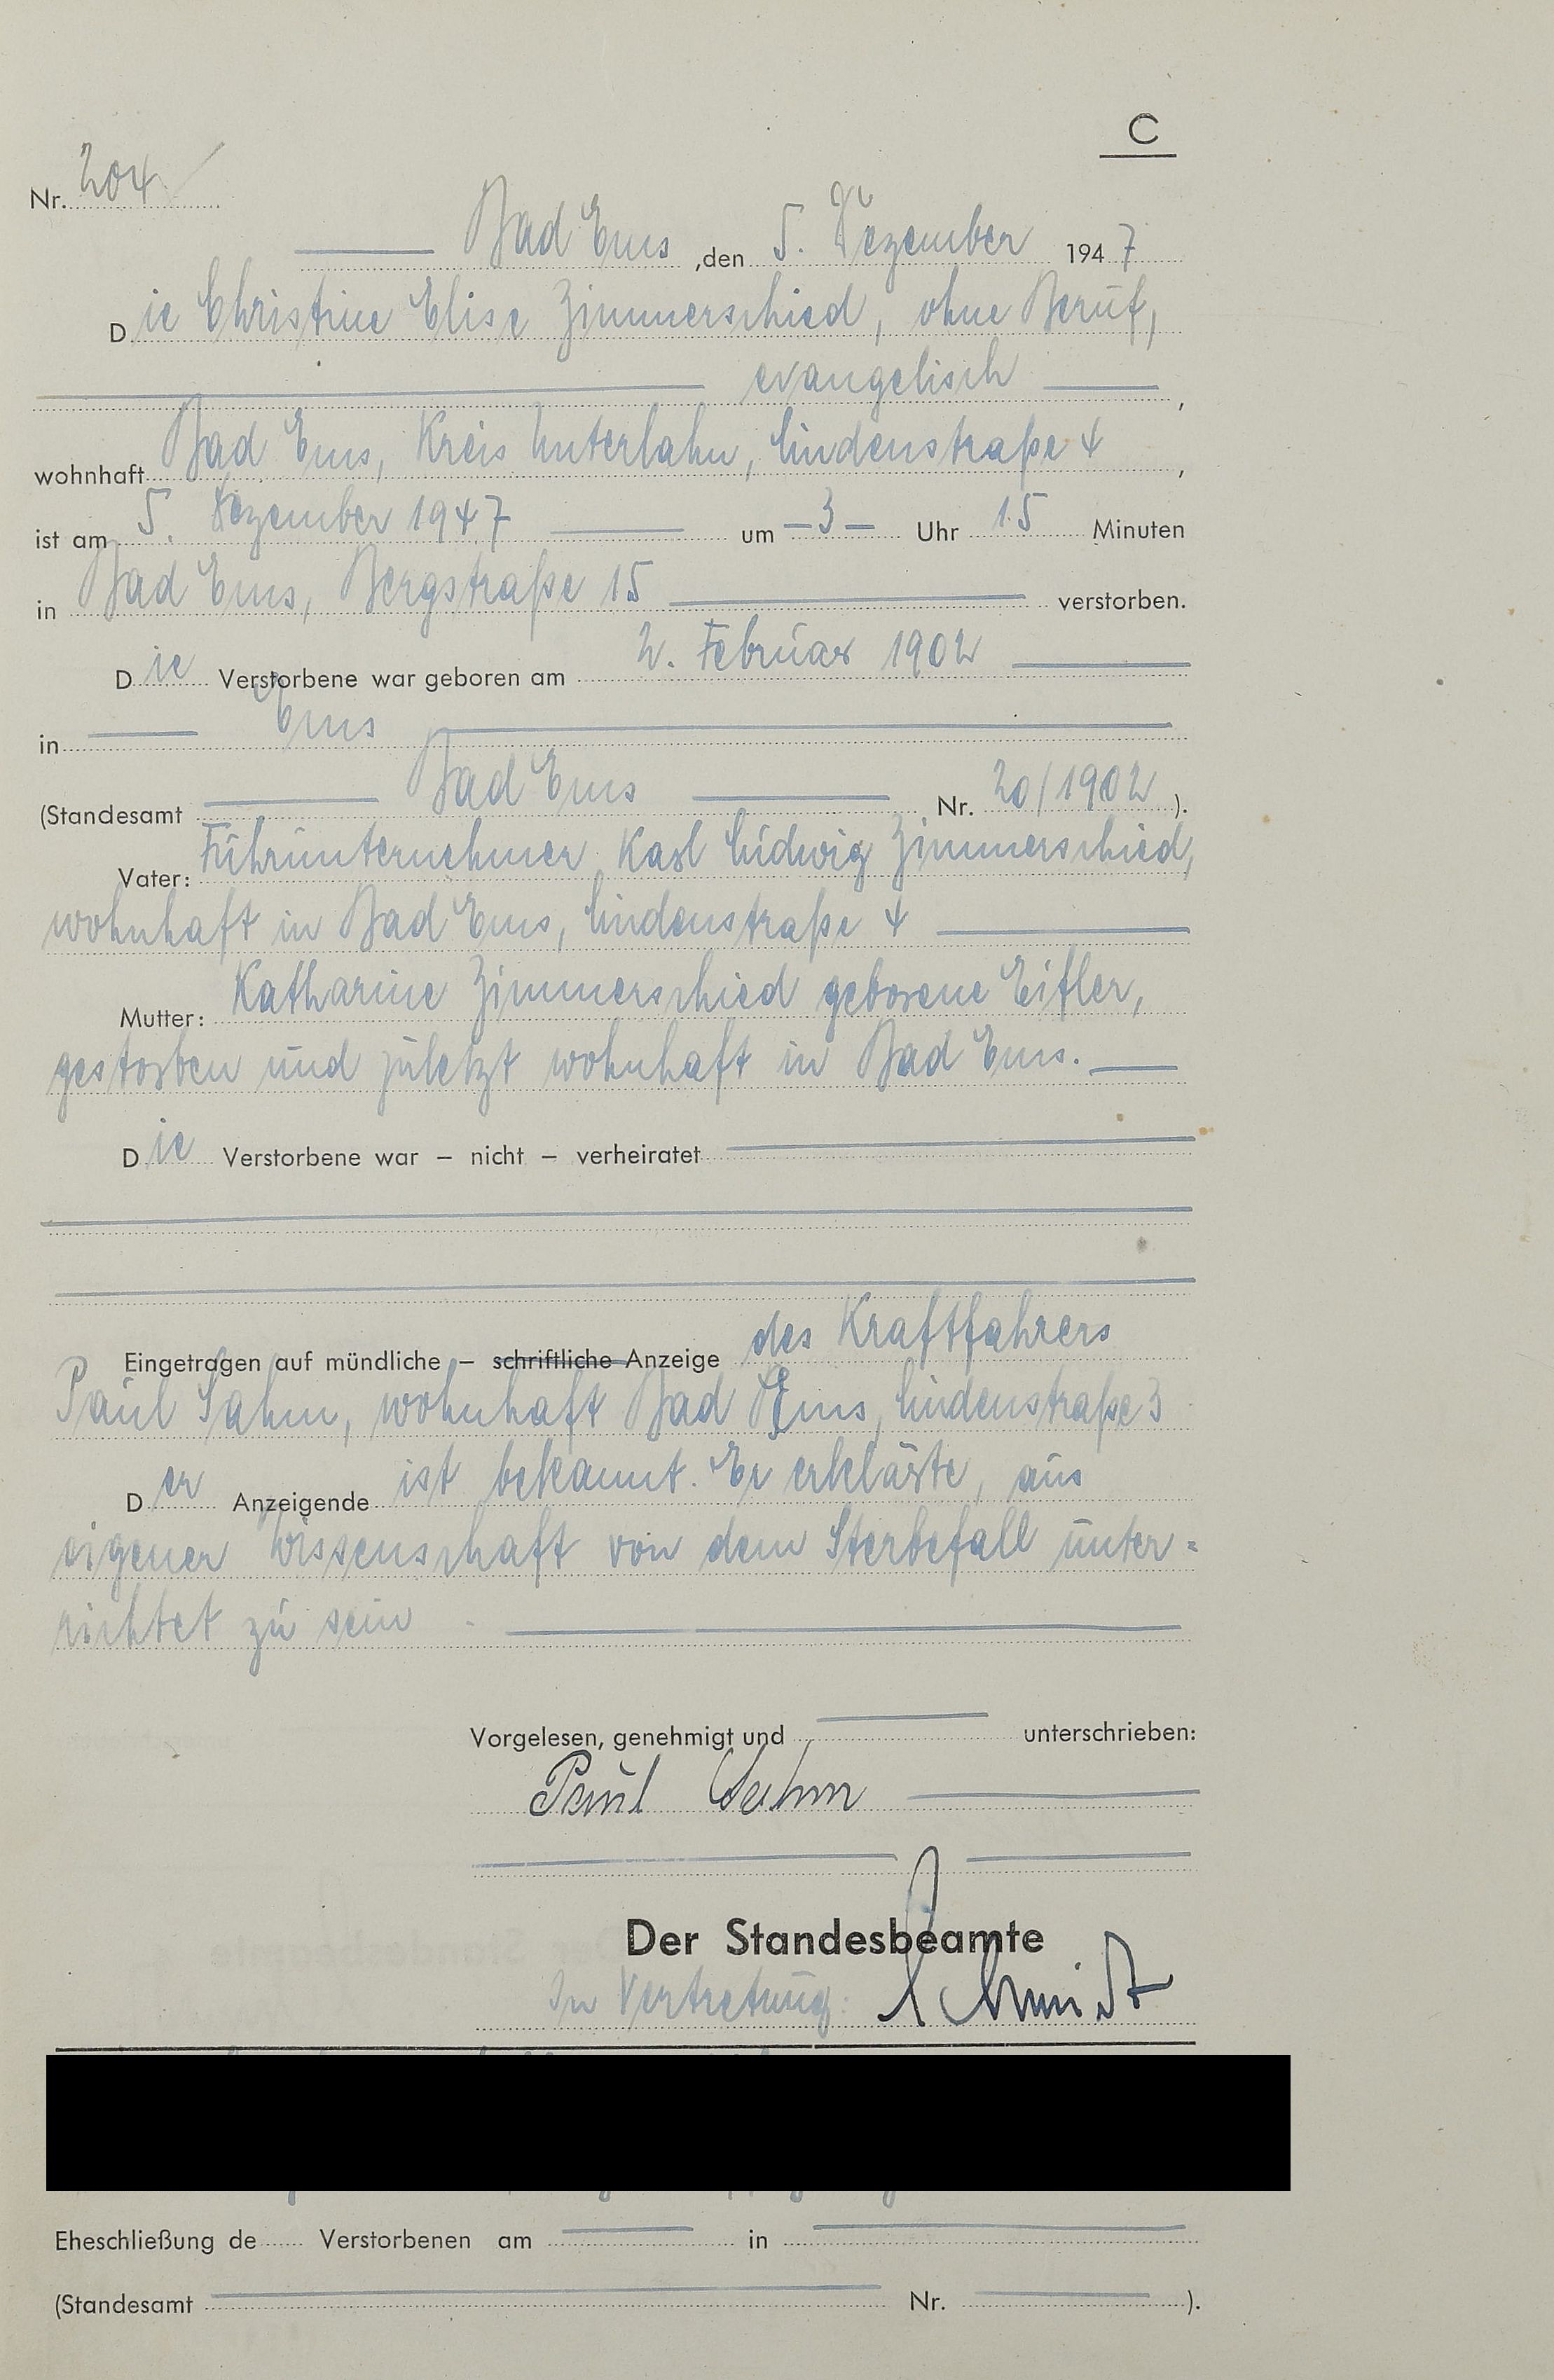 C
Nr. 204
Bad Ems, den 5. Dezember 1947
Die Christine Elise Zimmerschied, ohne Beruf,
evangelisch,
wohnhaft Bad Ems, Kreis Unterlahn, Lindenstraße 4,
ist am 5. Dezember 1947 um 3 Uhr 15 Minuten
in Bad Ems, Bergstraße 15 verstorben.
Die Verstorbene war geboren am 2. Februar 1902
in Ems
(Standesamt Bad Ems Nr. 20/1902).
Vater: Fuhrunternehmer Karl Ludwig Zimmerschied,
wohnhaft in Bad Ems, Lindenstraße 4
Mutter: Katharine Zimmerschied geborene Eifler,
gestorben und zuletzt wohnhaft in Bad Ems.
Die Verstorbene war – nicht – verheiratet
Eingetragen auf mündliche – schriftliche Anzeige des Kraftfahrers
Paul Sahm, wohnhaft Bad Ems, Lindenstraße 3
Der Anzeigende ist bekannt. Er erklärte, aus
eigener Wissenschaft von dem Sterbefall unter=
richtet zu sein.
Vorgelesen, genehmigt und unterschrieben:
Paul Sahm
Der Standesbeamte
In Vertretung: Schmidt
Eheschließung de Verstorbenen am in
(Standesamt Nr. ).